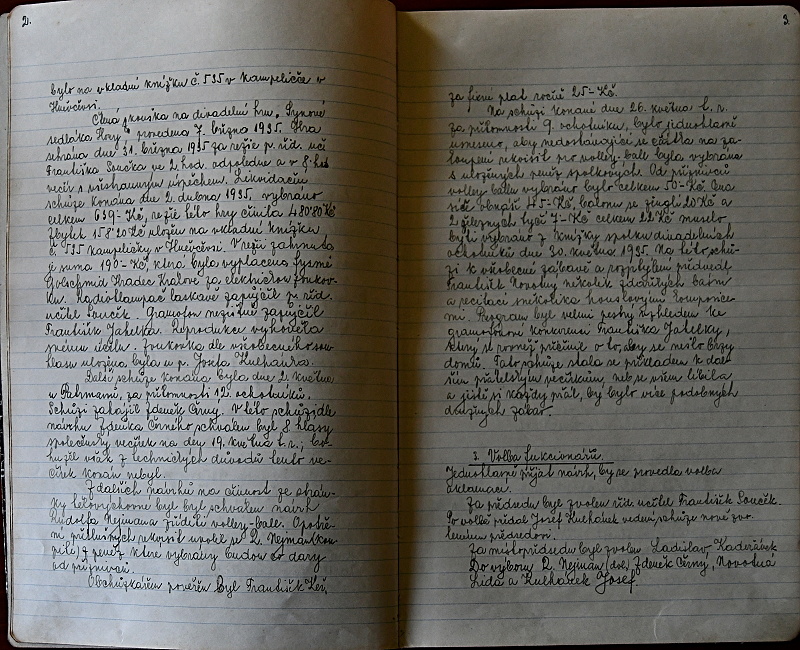 2.
bylo na vkladní knížku č. 535 v kampeličce v
Hněvčevsi.
na divadelní hru „Synové
sedláka Hry" provedena 7. března 1935. Hra
sehrána dne 31. března 1935 za režie p. říd. uč.
Františka Součka ve 2 hod. odpoledne a v 8. hod
večer s úspěchem. Likvidační
schůze konána dne 2. dubna 1935, vybráno
celkem 639- Kč, režie této hry činila 480'80 Kč
Zbytek 158'20 Kč uložen na vkladní knížku
č. 535 kampeličky v Hněvčevsi. V režii zahrnuta
je suma 190- Kč, která byla vyplacena firmě
Hradec Králové za elektrickou foukov-
ku. laskavě zapůjčil p. říd.
učitel Souček. Gramofon nezištně zapůjčil
František Jahelka. Reprodukce vyhověla
svému účelu. Foukovka dle všeobecného sou-
hlasu uložena byla u p. Josefa Kulhánka.
Další schůze konána byla dne 2. května
u za přítomnosti 12. ochotníků.
Schůzi zahájil Zdeněk Černý. V této schůzi dle
návrhu Zdeňka Černého schválen byl 8 hlasy
společenský večírek na den 19. května t. r.; bo-
hužel však z technických důvodů tento ve-
čírek konán nebyl.
Z dalších návrhů na činnost ze strán-
ky tělovýchovné byl byl schválen návrh
Rudolfa Nejmana zříditi volley-ball. Opatře-
ní příslušných rekvisit uvolil se R. Nejman(kou-
piti) z peněz které vybrány budou co dary
od příznivců.
Obchůzkářem pověřen byl František
3.
za fixní plat ročně 25- Kč.
Na schůzi konané dne 26. května t. r.
za přítomnosti 9. ochotníků, bylo jednohlasně
usneseno, aby nedostávající se částka na za-
koupení rekvisit pro volley-ball byla vybrána
z uložených peněz spolkových. Od příznivců
volley-ballu vybráno bylo celkem 50- Kč.
síť obnáší 45- Kč, balon se 20 Kč a
2 železných tyčí 7- Kč celkem 22 Kč muselo
býti vybráno z knížky spolku divadelních
ochotníků dne 30. května 1935. Na této schů-
zi k všeobecné zábavě a rozptýlení přednesl
František Novotný několik zdařilých básní
a recitací několika houslovými komposice-
mi. Program byl velmi pestrý vzhledem ke
gramofonní konkurenci Františka Jahelky,
který si rovněž přičinil o to, aby se nešlo brzy
domů. Tato schůze stala se příkladem k dal-
ším přátelským večírkům, neb se všem líbila
a jistě si každý přál, by bylo více podobných
družných zábav.
3. Volba funkcionářů.
Jednohlasně přijat návrh, by se provedla volba
aklamací.
Za předsedu byl zvolen říd. učitel František Souček.
Po volbě předal Josef Kulhánek vedení schůze nově zvo-
lenému předsedovi.
Za místopředsedu byl zvolen Ladislav Kadeřábek
Do výboru R. Nejman (dol.) Zdeněk Černý, Novotná
Lída a Kulhánek Josef.